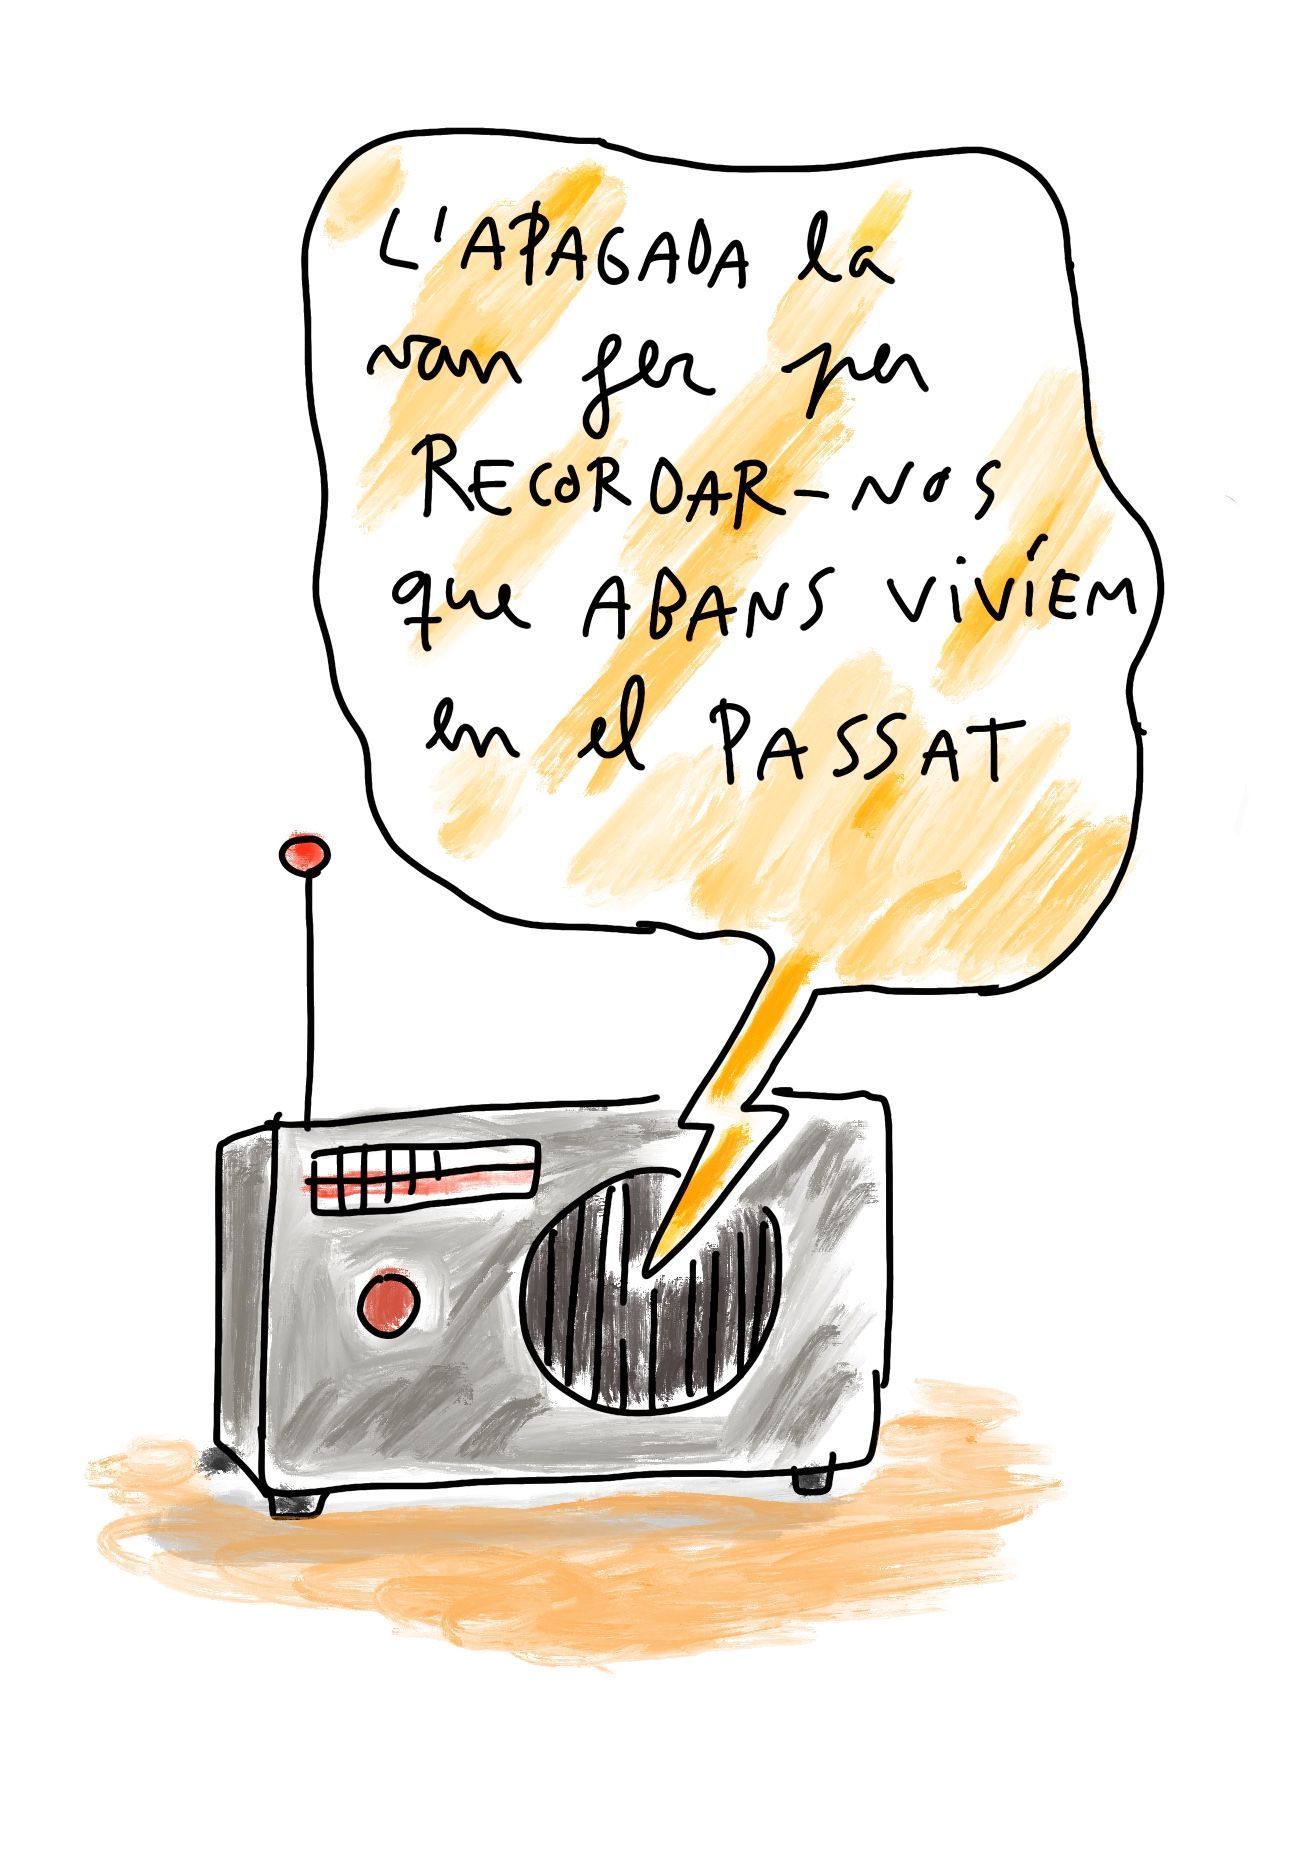 L'APAGADA la
van fer per
RECORDAR-NOS
que ABANS VIVÍEM
en el PASSAT